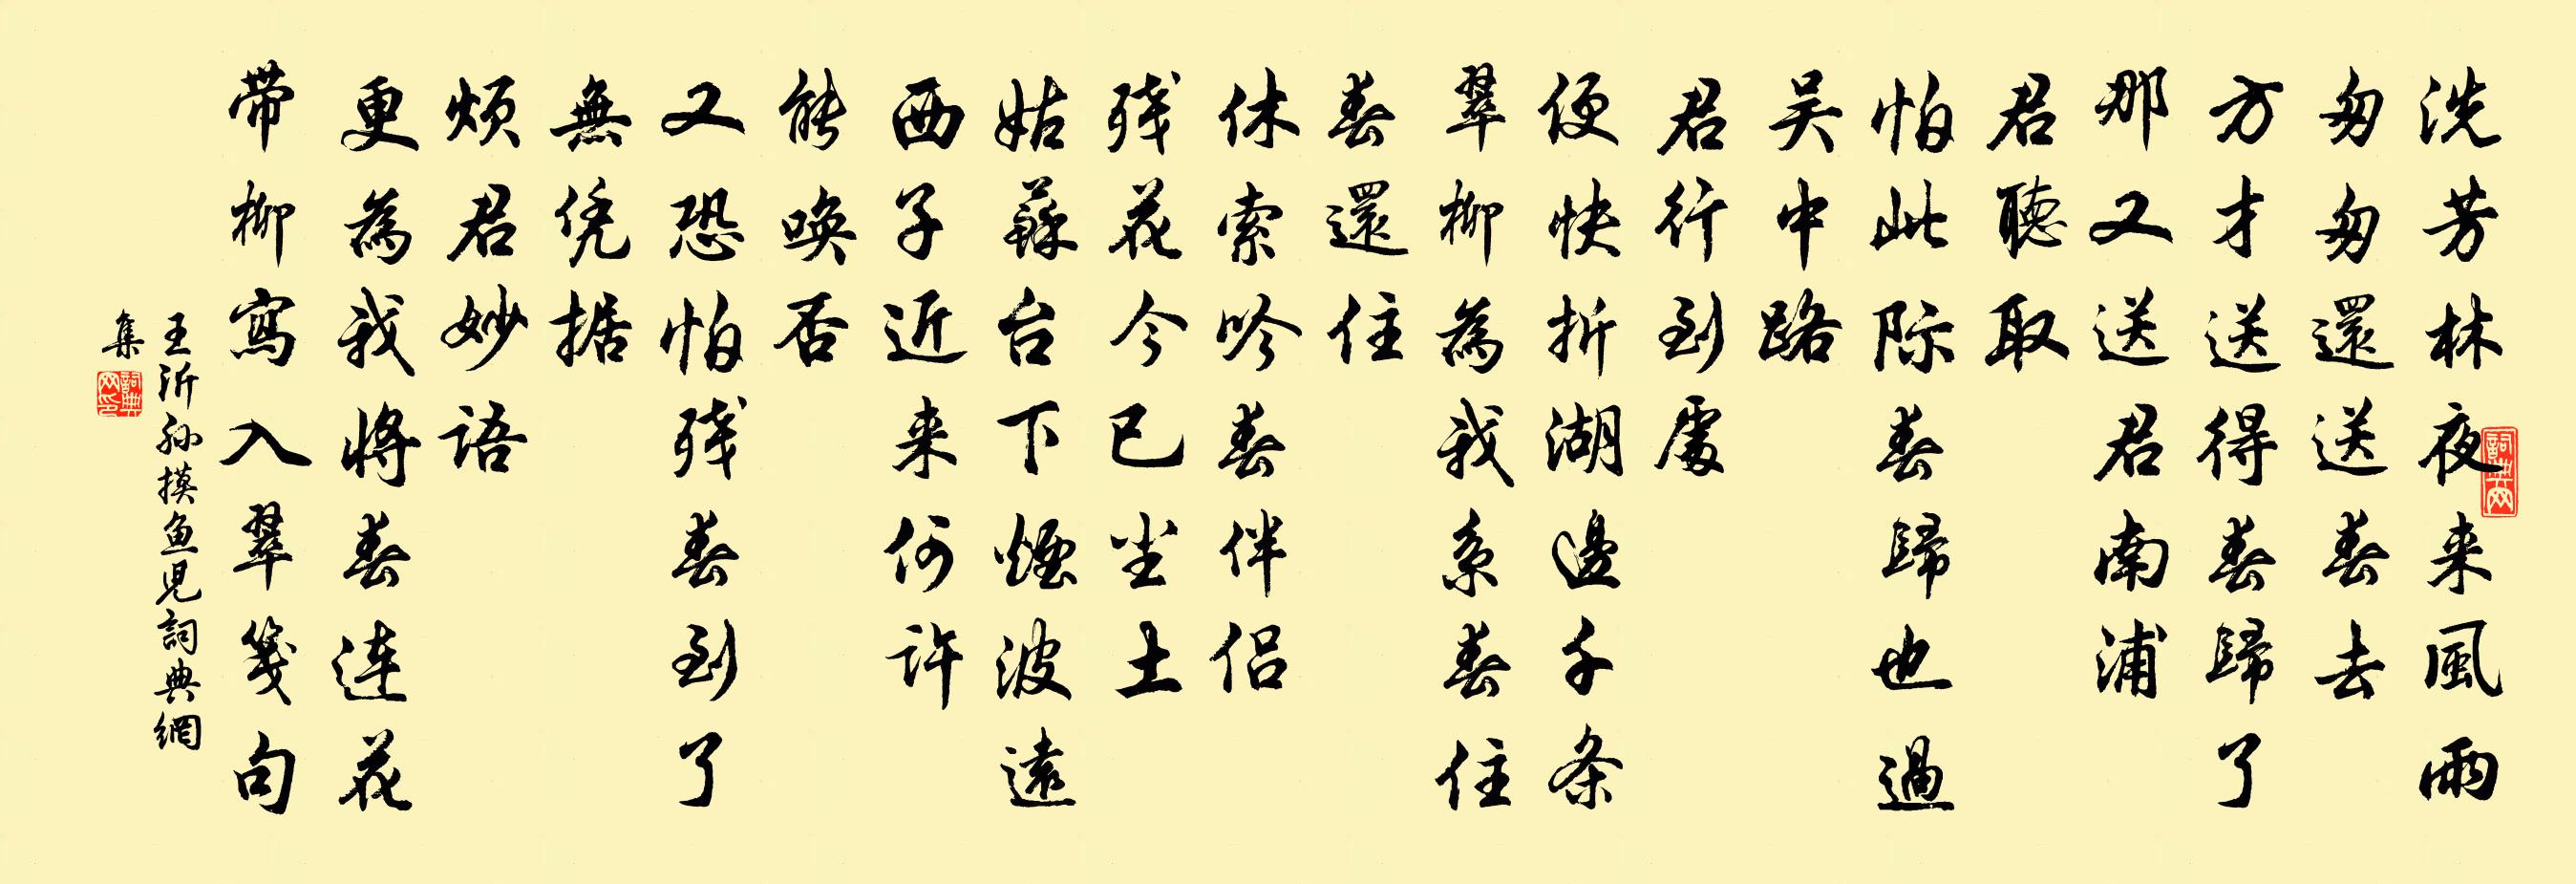 洗芳林夜来風雨
匆匆還送春去
方才送得春歸了
那又送君南浦
君聽取
怕此际春歸也過
吴中路
君行到處
便快折湖邊千条
翠柳為我系春住
春還住
休索吟春伴侣
残花今已尘土
姑蘇台下煙波遠
西子近来何许
能唤否
又恐怕残春到了
無凭据
烦君妙语
更為我将春连花
带柳寫入翠笺句
王沂孙摸鱼児詞典網
集
詞典网
詞典网印